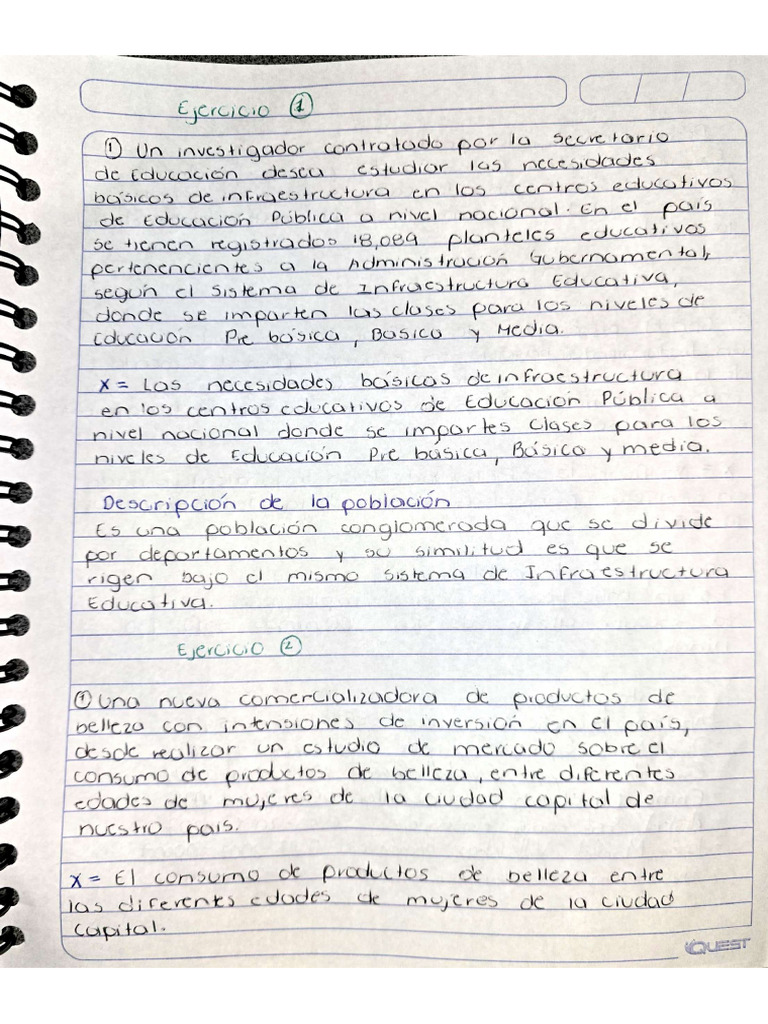 Ejercicio ①
① Un investigador contratado por la secretario
de Educación desea estudiar las necesidades
básicos de infraestructura en los centros educativos
de Educación Pública a nivel nacional. En el país
se tienen registrados 18,089 planteles educativos
pertenencientes a la Administración Gubernamental,
según el Sistema de Infraestructura Educativa,
donde se imparten las clases para los niveles de
Educación Pre básica, Basica y Media.
x = Las necesidades básicas de infraestructura
en los centros educativos de Educación Pública a
nivel nacional donde se impartes clases para los
niveles de Educación Pre básica, Básica y media.
Descripción de la población
Es una población conglomerada que se divide
por departamentos y su similitud es que se
rigen bajo el mismo sistema de Infraestructura
Educativa.
Ejercicio ②
① Una nueva comercializadora de productos de
belleza con intensiones de inversión en el país,
desde realizar un estudio de mercado sobre el
consumo de productos de belleza, entre diferentes
edades de mujeres de la ciudad capital de
nuestro pais.
x = El consumo de productos de belleza entre
las diferentes edades de mujeres de la ciudad
capital.
QUEST